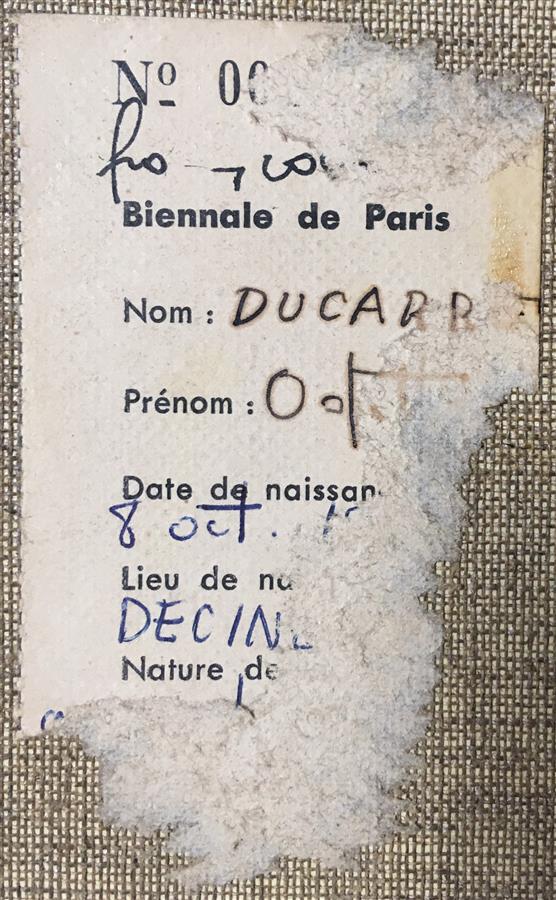 Nº 00
Biennale de Paris
Nom : DUCARR
Prénom :
Date de naissan
8 oct.
Lieu de na
DECIN
Nature de